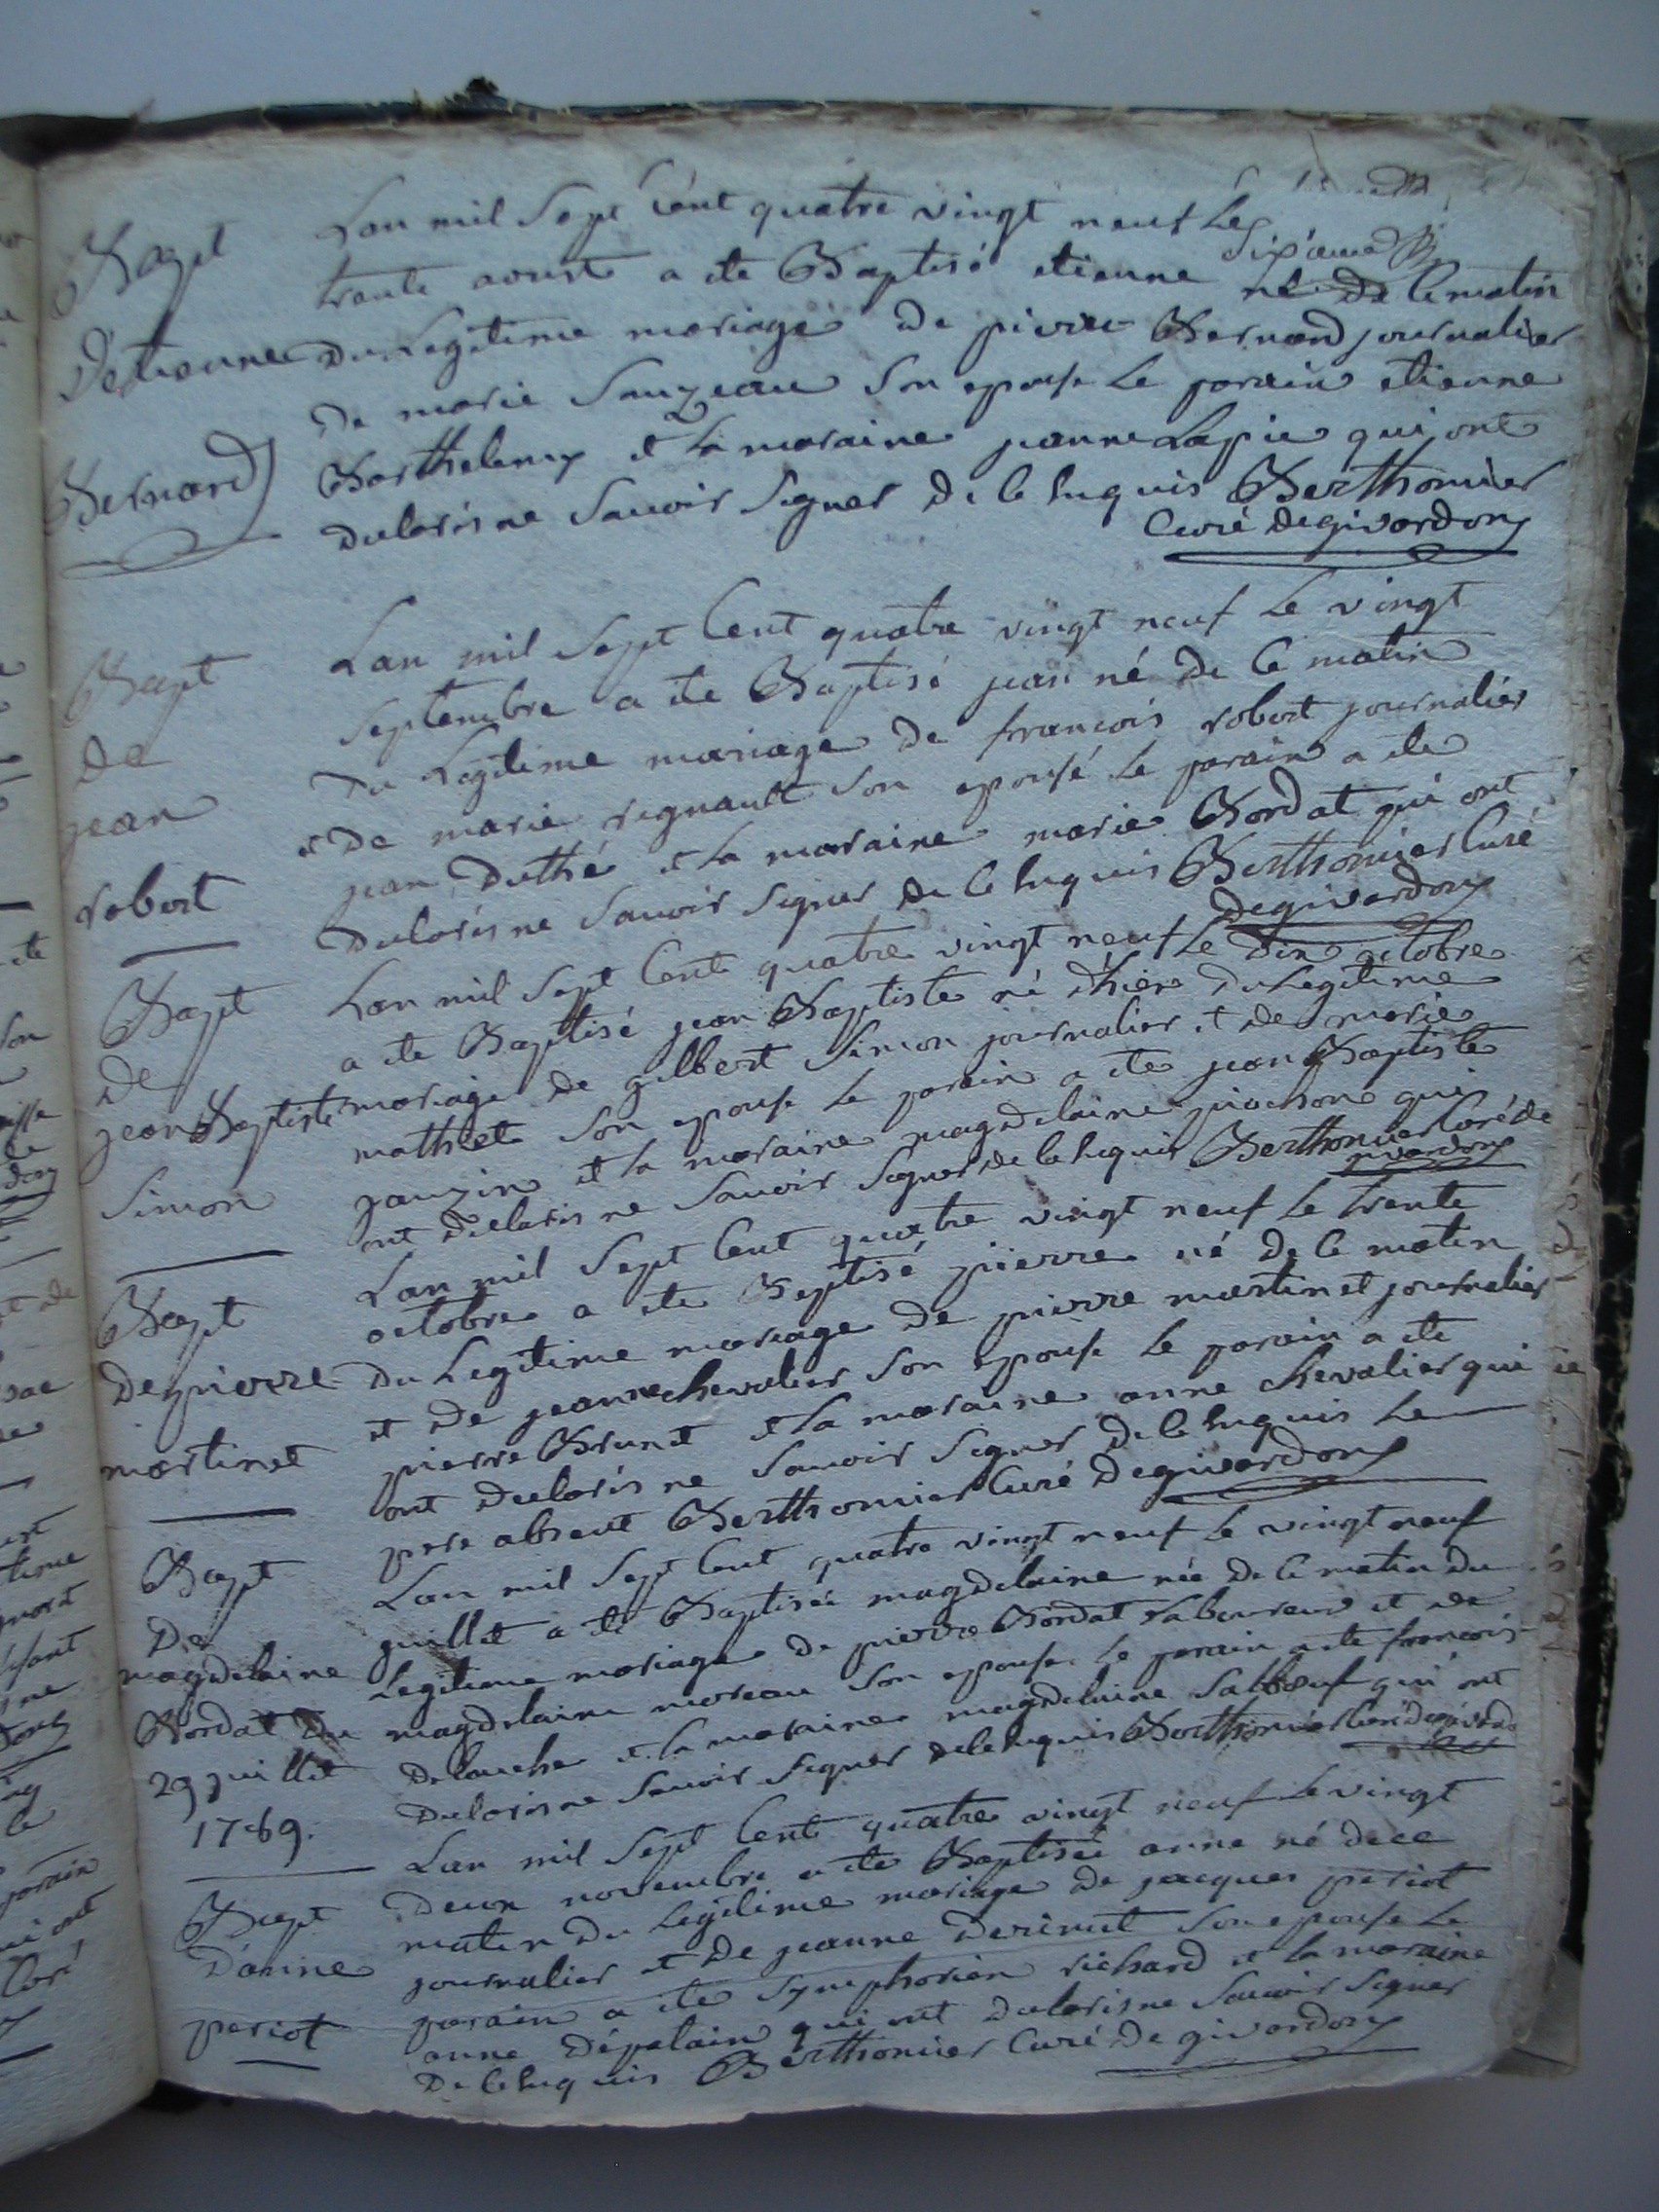 Bapt
D'etienne
Bernard
Lan mil Sept Cent quatre vingt neuf Le
Sixieme
trente aoust a ete Baptisé etienne né de Ce matin
Du Legitime mariage De pierre Bernard journalier
De marie Sauzeau Son epouse Le parain etienne
Barthelemy et La maraine jeanne Lapie qui ont
Declaris ne Savoir Signer De Ce Enquis Berthomier
Curé de givardon
Bapt
De
jean
robert
Lan mil Sept Cent quatre vingt neuf Le vingt
Septembre a ete Baptisé jean né De Ce matin
Du Legitime mariage De francois robert journalier
et De marie regnault Son epouse Le parain a ete
jean Duthé et La maraine marie Bordat qui ont
Declaris ne Savoir Signer De Ce Enquis Berthomier Curé
Degivardon
Bapt
De
jean Baptiste
Simon
Lan mil Sept Cent quatre vingt neuf Le Dix octobre
a ete Baptisé jean Baptiste né d'hier Du Legitime
mariage De gilbert Simon journalier et De marie
mathiet Son epouse Le parain a ete jean Baptiste
jauzin et La maraine magdelaine piochon qui
ont Declaris ne Savoir Signer de Ce Enquis Berthomier Curé de
givardon
Bapt
De pierre
martinet
Lan mil Sept Cent quatre vingt neuf Le trente
octobre a ete Baptisé pierre né De Ce matin
Du Legitime mariage De pierre martinet journalier
et De jeanne chevalier Son epouse Le parain a ete
pierre Brunet et La maraine anne chevalier qui
ont Declaris ne Savoir Signer De Ce Enquis Le
pere absent Berthomier Curé Degivardon
Bapt
De
magdelaine
Bordat Du
29 juillet
1789.
Lan mil Sept Cent quatre vingt neuf Le vingt neuf
juillet a ete Baptisée magdelaine née De Ce matin Du
Legitime mariage De pierre Bordat Laboureur et De
magdelaine moreau Son epouse Le parain a ete francois
Delouche et La maraine magdelaine Salboeuf qui ont
Declaris ne Savoir Signer de Ce Enquis Berthomier Curé Degivardon
Bapt
D'anne
periot
Lan mil Sept Cent quatre vingt neuf Le vingt
Deux novembre a ete Baptisée anne né De Ce
matin Du Legitime mariage De jacques periot
journalier et De jeanne Derimet Son epouse Le
parain a ete Symphorien richard et La maraine
anne Dépalain qui ont Declaris ne Savoir Signer
De Ce Enquis Berthomier Curé De givardon